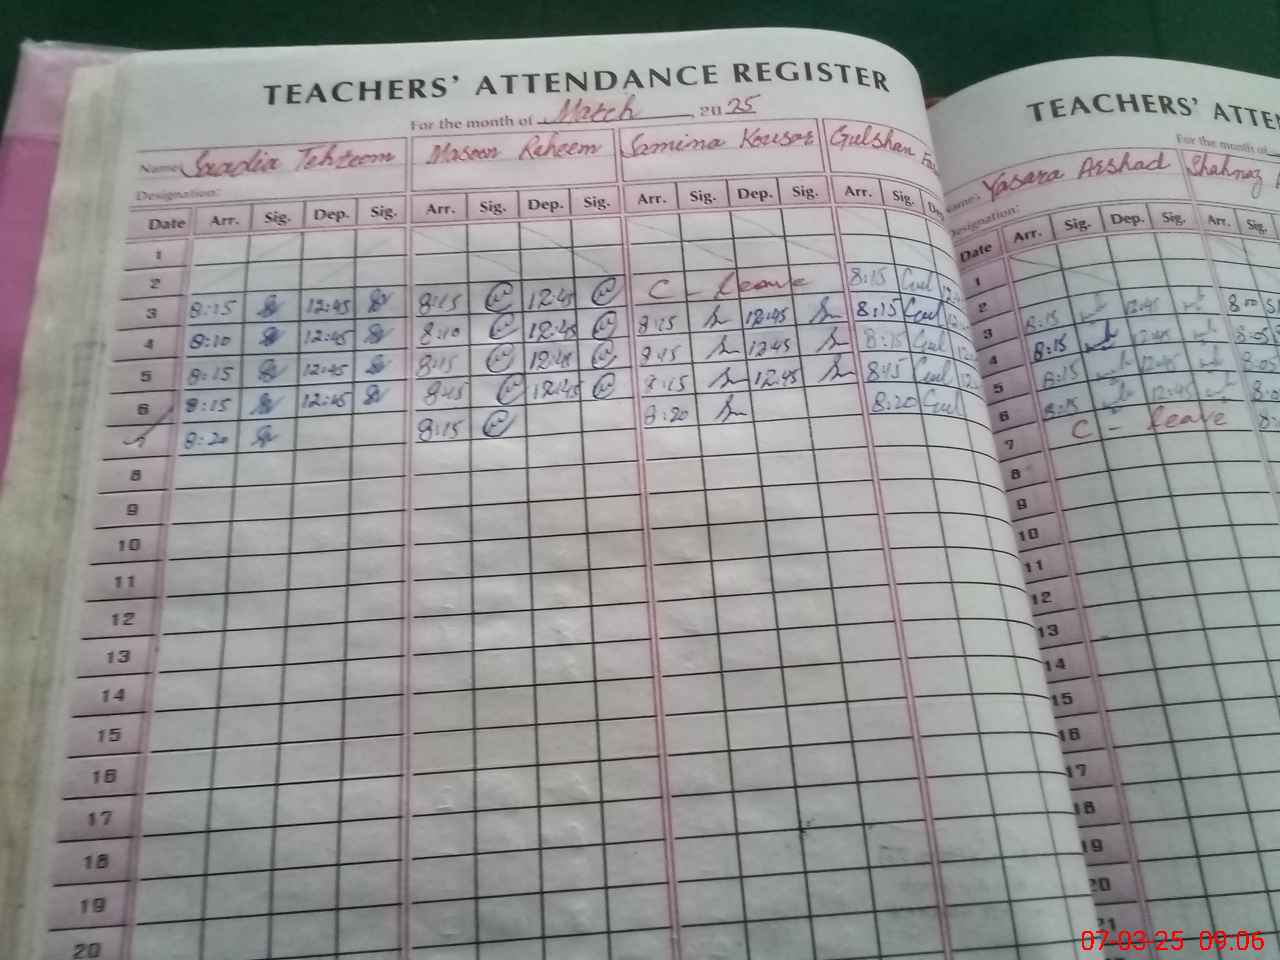 TEACHERS' ATTENDANCE REGISTER
For the month of March, 2025
Name: Saadia Tehreem Masoon Raheem Samina Kousar Gulshan
Designation:
Date Arr. Sig. Dep. Sig. Arr. Sig. Dep. Sig. Arr. Sig. Dep. Sig. Arr. Sig.
1
2
3 8:15 12:45 8:15 12:45 C - leave 8:15 Gul
4 8:10 12:45 8:10 12:45 8:15 12:45 8:15 Gul
5 8:15 12:45 8:15 12:45 8:15 12:45 8:15 Gul
6 8:15 12:45 8:15 12:45 8:15 12:45 8:15 Gul
7 8:20 8:15 8:20 8:20 Gul
8
9
10
11
12
13
14
15
16
17
18
19
20
TEACHERS' ATTEN
For the month of
Name: Yasara Arshad Shahnaz
Designation:
Date Arr. Sig. Dep. Sig. Arr. Sig.
1
2
3 8:15 12:45 8:00
4 8:15 12:45 8:05
5 8:15 12:45 8:05
6 8:15 12:45
7 C - leave
8
9
10
11
12
13
14
15
16
17
18
19
20
21
07-03-25 09.06